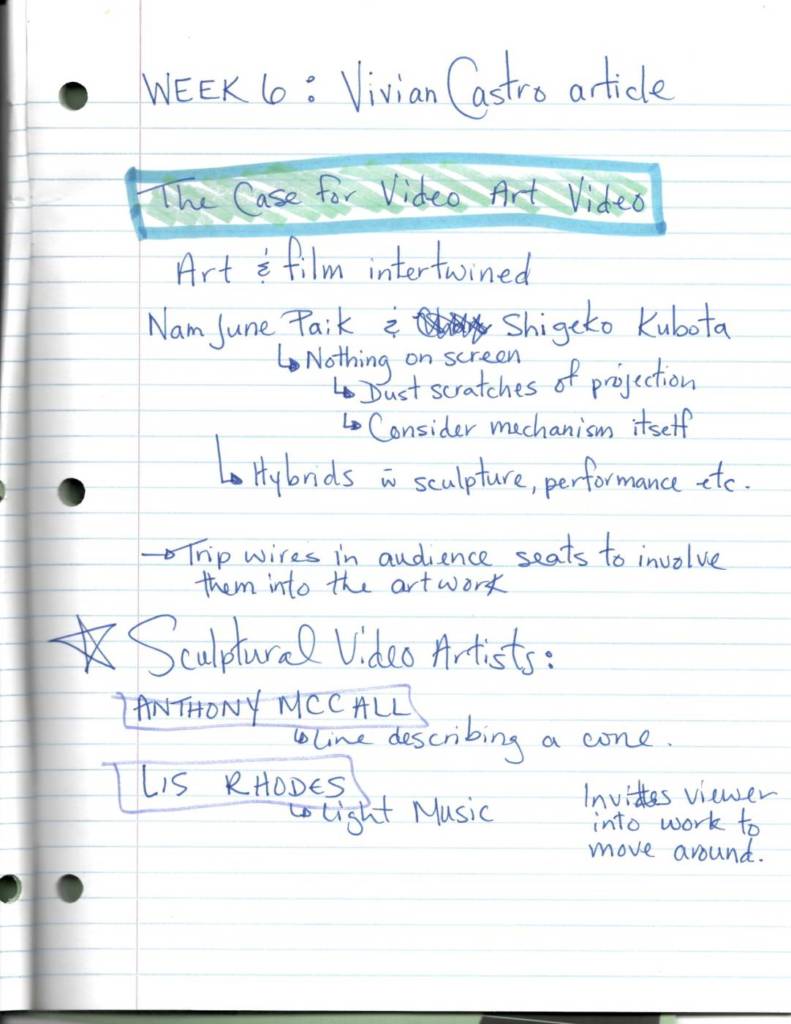 WEEK 6: Vivian Castro article
The Case for Video Art Video
Art & film intertwined
Nam June Paik & Shigeko Kubota
↳ Nothing on screen
↳ Dust scratches of projection
↳ Consider mechanism itself
↳ Hybrids w sculpture, performance etc.
→ Trip wires in audience seats to involve
them into the artwork
☆ Sculptural Video Artists:
ANTHONY MCCALL
↳ Line describing a cone.
LIS RHODES
↳ Light Music
Invites viewer
into work to
move around.